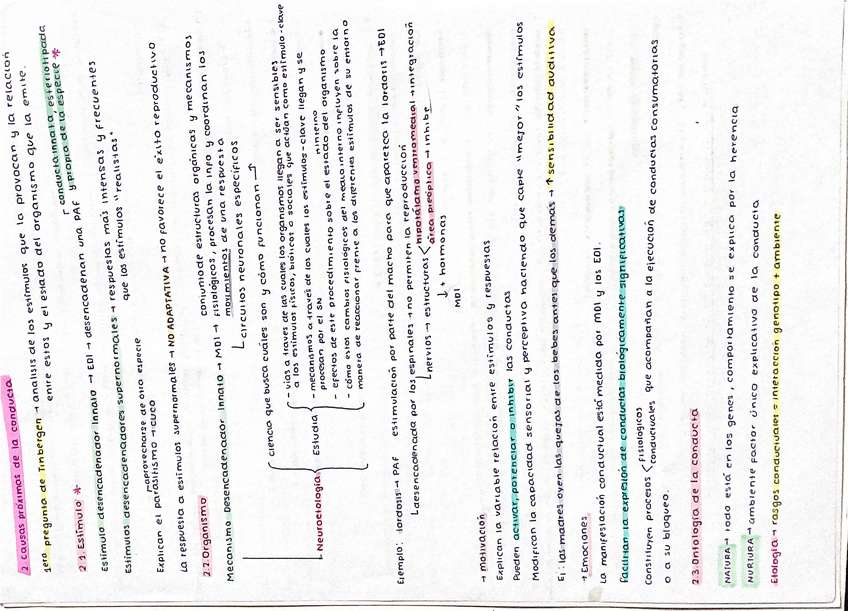 2. causas próximas de la conducta
1era pregunta de Tinbergen → analisis de los estímulos que la provocan y la relación
entre estos y el estado del organismo que la emite.
2.1. Estímulo *
conducta innata, esteriotipada
y propia de la especie *
Estímulo desencadenador Innato → EDI → desencadenan una PAF
Estímulos desencadenadores supernormales → respuestas mas intensas y frecuentes
que los estímulos "realistas".
aprovecharse de otra especie
Explican el parasitismo → cuco
La respuesta a estímulos supernormales → NO ADAPTATIVA → no favorece el éxito reproductivo
2.2. Organismo
conjunto de estructuras orgánicas y mecanismos
Mecanismo Desencadenador Innato → MDI → fisiológicos, procesan la info y coordinan los
movimientos de una respuesta
circuitos neuronales específicos
ciencia que busca cuáles son y cómo funcionan
→ Neuroetología
Estudia
- vías a través de las cuales los organismos llegan a ser sensibles
a los estímulos físicos, bióticos o sociales que actúan como estímulo-clave
- mecanismos a través de los cuales los estímulos-clave llegan y se
procesan por el SN
interno
- efectos de este procedimiento sobre el estado del organismo
- cómo estos cambios fisiológicos del medio interno influyen sobre la
manera de reaccionar frente a los diferentes estímulos de su entorno
Ejemplo: lordosis → PAF estimulación por parte del macho para que aparezca la lordosis → EDI
desencadenada por los espinales → no permiten la reproducción
nervios → estructuras
hipotálamo ventromedial → integración
área preóptica → inhibe
+ hormonas
MDI
→ motivación
Explican la variable relación entre estímulos y respuestas
Pueden activar, potenciar o inhibir las conductas
Modifican la capacidad sensorial y perceptiva haciendo que capte "mejor" los estímulos
Ej: las madres oyen las quejas de los bebes antes que los demas → ↑ sensibilidad auditiva
→ Emociones
La manifestación conductual está mediada por MDI y los EDI.
Facilitan la expresión de conductas biológicamente significativas
Constituyen procesos
fisiologicos
conductuales
que acompañan a la ejecución de conductas consumatorias
o a su bloqueo.
2.3. Ontología de la conducta
NATURA → todo está en los genes, comportamiento se explica por la herencia
NURTURA → ambiente factor único explicativo de la conducta
Etología → rasgos conductuales = interacción genotipo + ambiente